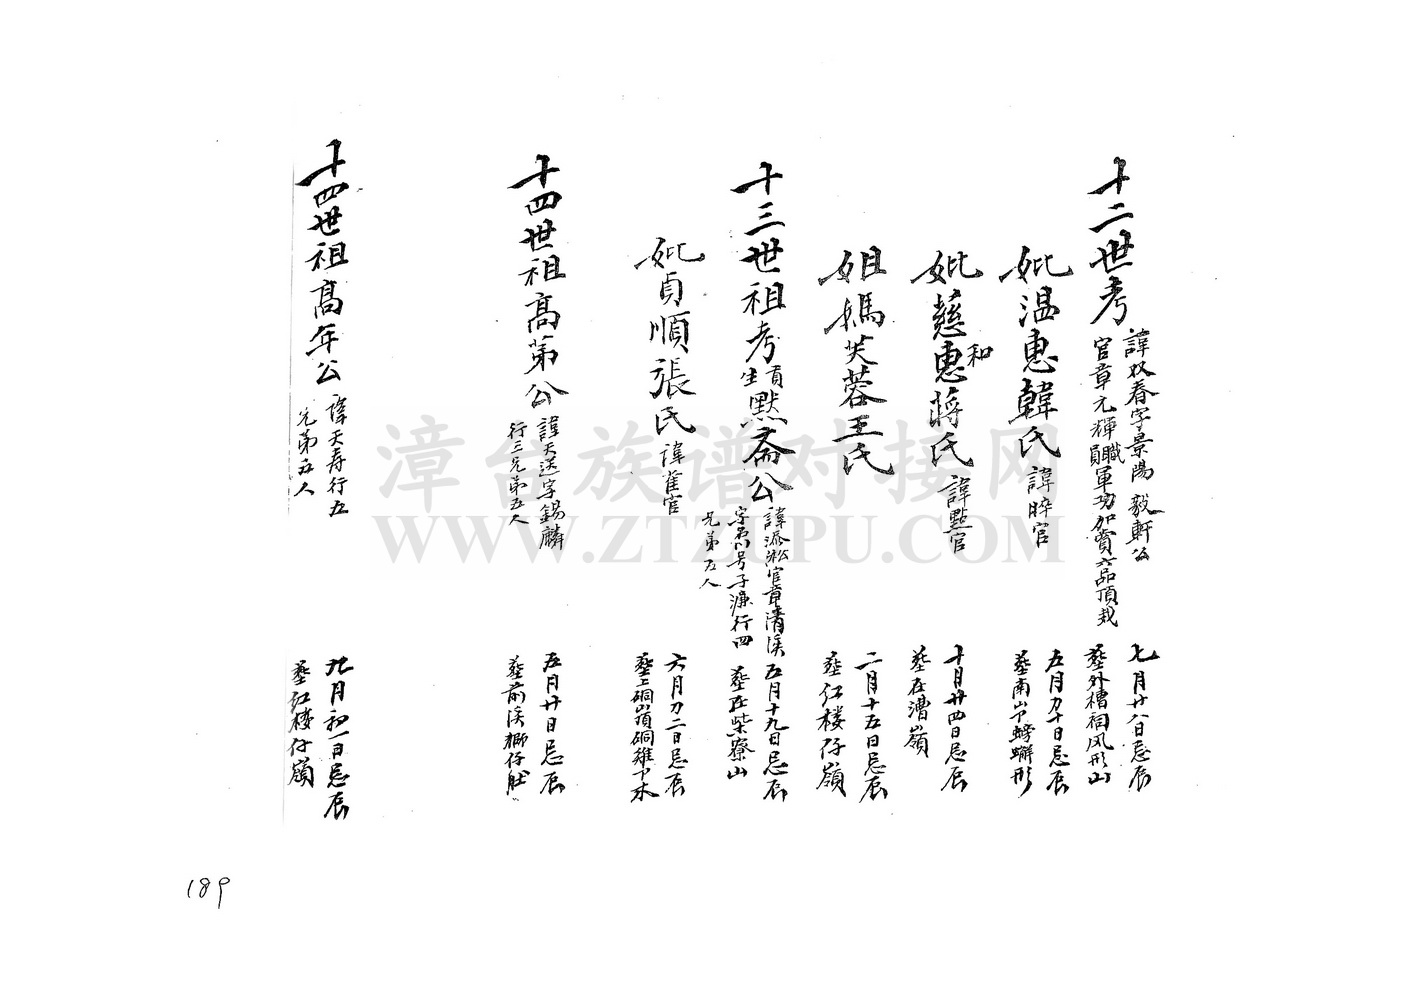 十二世考
諱双春字景陽 毅軒公
官章元輝職員軍功加賞六品頂戴
七月廿八日忌辰
塟外槽祠风形山
妣温惠韓氏 諱晬官
五月初十日忌辰
塟南山下螃蠏形
妣慈惠和蔣氏 諱點官
十月廿四日忌辰
塟在漕嶺
姐媽芙蓉王氏
二月十五日忌辰
塟红楼仔嶺
十三世祖考貢生默斋公
諱添淞官章清溪
字君 号子濂行四
兄弟五人
五月十九日忌辰
塟在柴寮山
妣貞順張氏 諱雀官
六月初二日忌辰
塟上硐崗頂硐雞下水
十四世祖高第公
諱天送字錫麟
行三兄弟五人
五月廿日忌辰
塟前溪獅仔肚
十四世祖高年公
諱天寿行五
兄弟五人
九月初一日忌辰
塟红楼仔嶺
漳台族谱对接网
WWW.ZTZUPU.COM
189